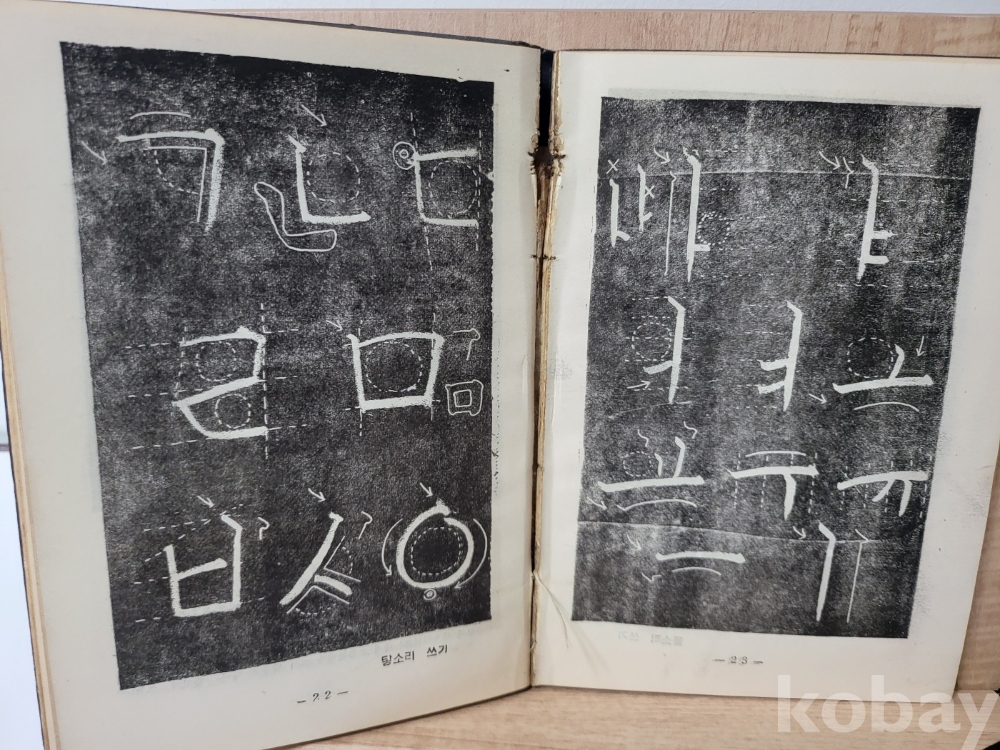 ㄱ ㄴ ㄷ
ㄹ ㅁ
ㅂ ㅅ ㅇ
닿소리 쓰기
— 22 —
ㅏ ㅑ
ㅓ ㅕ ㅗ
ㅛ ㅜ ㅠ
ㅡ ㅣ
— 23 —
kobay